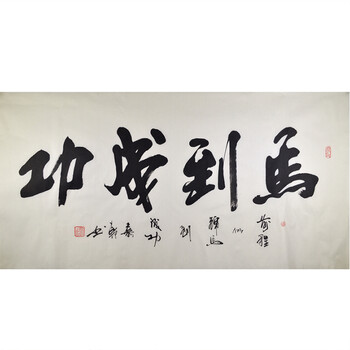 馬到成功
前程似錦馬到成功